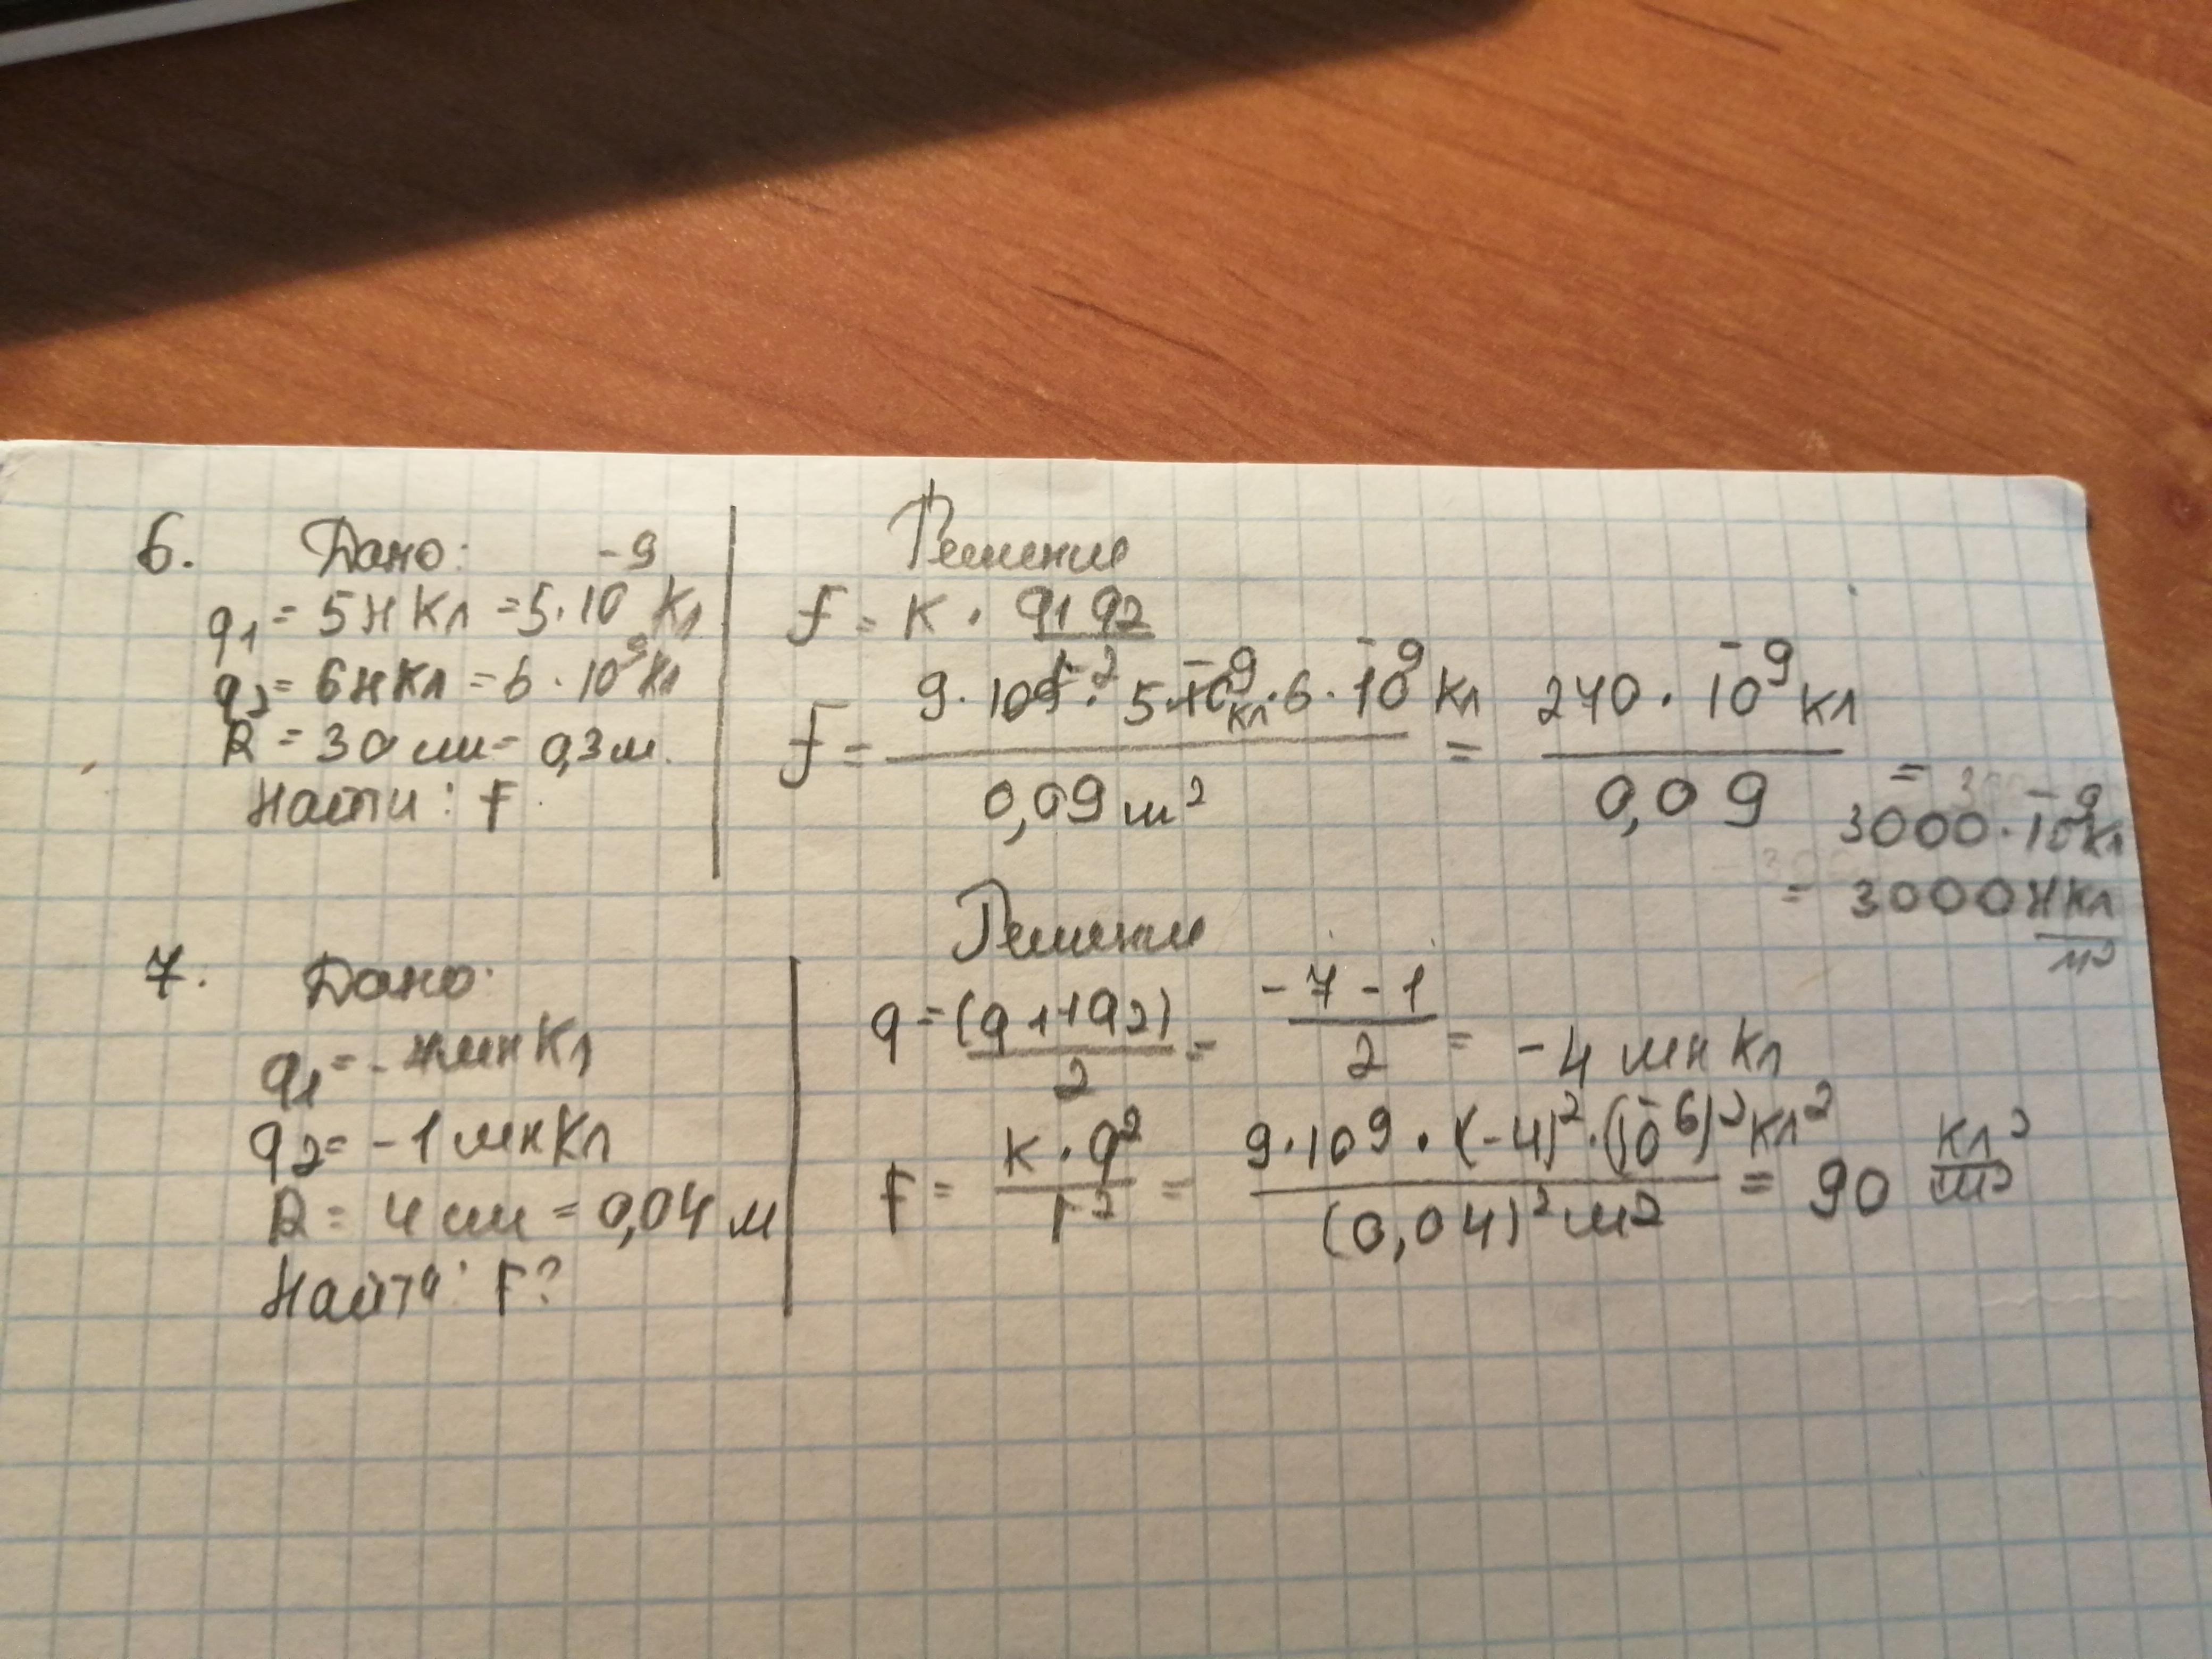 6. Дано:
q₁ = 5нКл = 5·10⁻⁹ Кл
q₂ = 6нКл = 6·10⁻⁹ Кл
R = 30 см = 0,3 м.
Найти: F.
Решение
F = K · q₁ q₂ / r²
F = 9·10⁹ · 5·10⁻⁹ Кл · 6·10⁻⁹ Кл / 0,09 м² = 270·10⁻⁹ Кл / 0,09 =
3000·10⁻⁹ Кл
= 3000 нКл / м²
7. Дано:
q₁ = -7мкКл
q₂ = -1 мкКл
R = 4 см = 0,04 м
Найти: F?
Решение
q = (q₁+q₂) / 2 = -7-1 / 2 = -4 мкКл
F = K·q² / r² = 9·10⁹ · (-4)² · (10⁻⁶)² Кл² / (0,04)² м² = 90 Кл² / м²